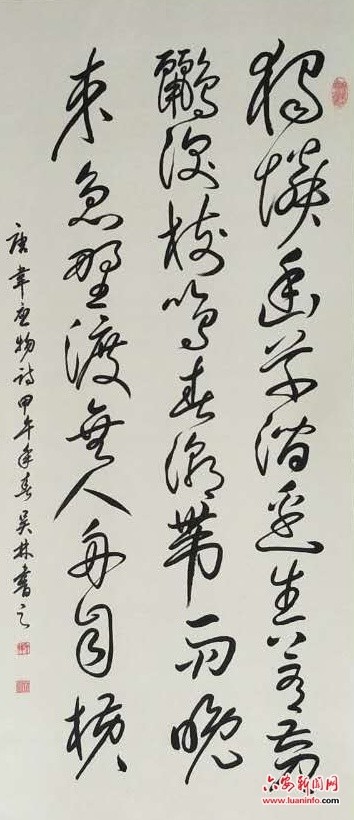 獨憐幽草澗邊生上有黄
鸝深樹鳴春潮帶雨晚
来急野渡無人舟自横
唐韋應物詩甲午年春吴林書之
六安新闻网
www.luaninfo.com